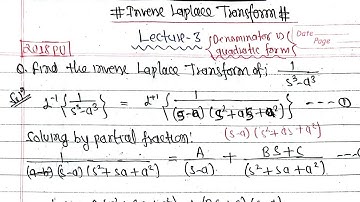 # Inverse Laplace Transform #
Lecture-3 {Denominator is quadratic form}
Date
Page
2018 PU
Q. Find the inverse Laplace Transform of; 1/(s³-a³)
Solⁿ
L⁻¹{1/(s³-a³)} = L⁻¹{1/((s-a)(s²+as+a²))} --- ①
Solving by partial fraction:
(s-a)(s²+as+a²)
1/((s-a)(s²+sa+a²)) = A/(s-a) + BS+C/(s²+sa+a²) ---